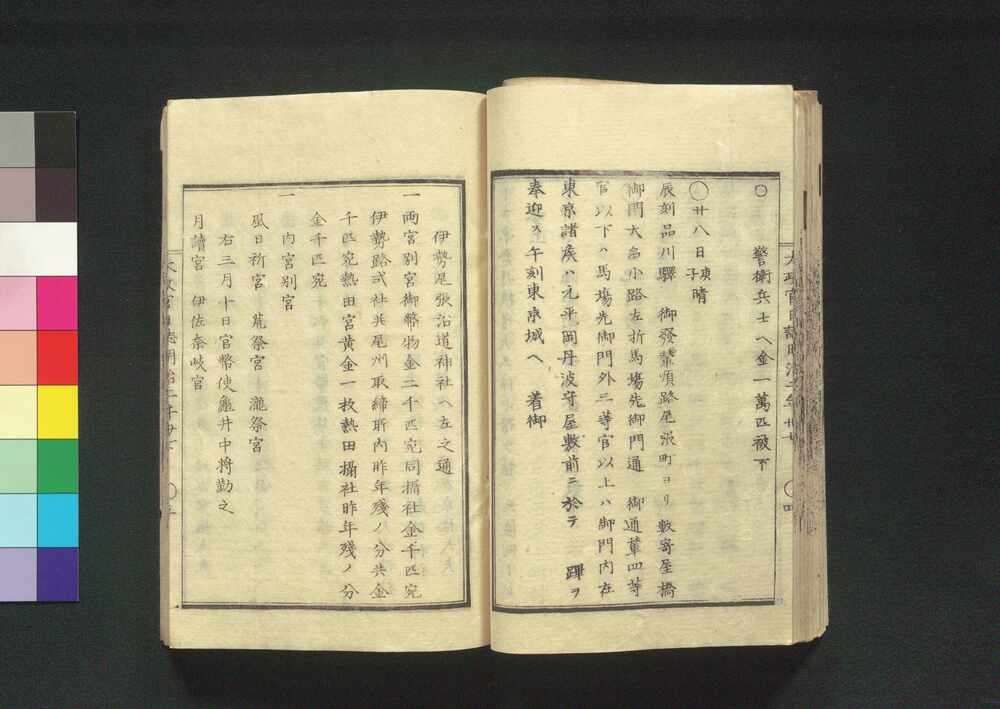 ○ 警衛兵士ヘ金一萬匹被下
○廿八日庚子晴
辰刻品川驛 御發輦順路尾張町ヨリ數寄屋橋
御門大名小路左折馬塲先御門通 御通輦四等
官以下ハ馬塲先御門外三等官以上ハ御門内在
東京諸矦ハ元平岡丹波守屋敷前ニ於テ 蹕ヲ
奉迎ス午刻東京城ヘ 着御
伊勢尾張沿道神社ヘ左之通
一 両宮別宮御幣物金二千匹宛同攝社金千匹宛
伊勢路式社共尾州取締所内昨年殘ノ分共金
千匹宛熱田宮黄金一枚熱田攝社昨年殘ノ分
金千匹宛
一 内宮別宮
風日祈宮 荒祭宮 瀧祭宮
右三月十日官幣使龜井中将勤之
月讀宮 伊佐奈岐宮